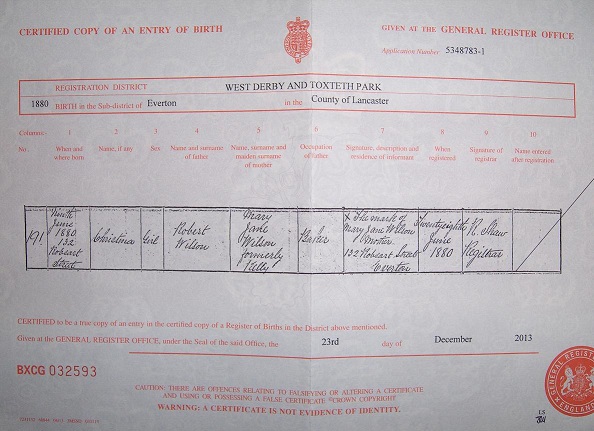 CERTIFIED COPY OF AN ENTRY OF BIRTH
GIVEN AT THE GENERAL REGISTER OFFICE
Application Number 5348783-1
REGISTRATION DISTRICT WEST DERBY AND TOXTETH PARK
1880 BIRTH in the Sub-district of Everton in the County of Lancaster
Columns:- 1 2 3 4 5 6 7 8 9 10
No. When and where born Name, if any Sex Name and surname of father Name, surname and maiden surname of mother Occupation of father Signature, description and residence of informant When registered Signature of registrar Name entered after registration
191 Ninth June 1880 132 Robsart Street Christina Girl Robert Wilson Mary Jane Wilson formerly Kelly Baker X The mark of Mary Jane Wilson Mother 132 Robsart Street Everton Twentyeighth June 1880 R. Shaw Registrar
CERTIFIED to be a true copy of an entry in the certified copy of a Register of Births in the District above mentioned.
Given at the GENERAL REGISTER OFFICE, under the Seal of the said Office, the 23rd day of December 2013
BXCG 032593
CAUTION: THERE ARE OFFENCES RELATING TO FALSIFYING OR ALTERING A CERTIFICATE
AND USING OR POSSESSING A FALSE CERTIFICATE ©CROWN COPYRIGHT
WARNING: A CERTIFICATE IS NOT EVIDENCE OF IDENTITY.
GENERAL REGISTER
ENGLAND